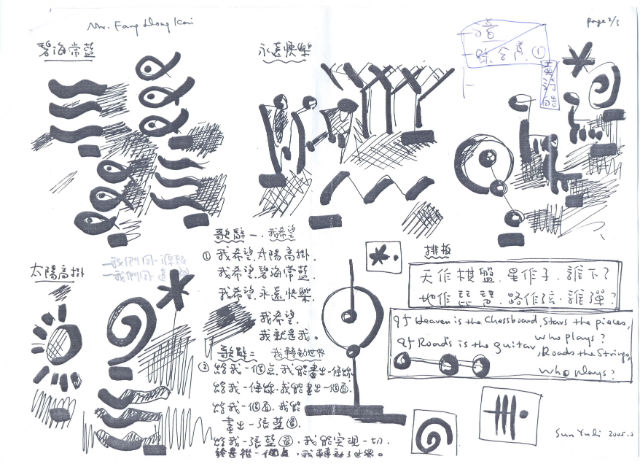 Mr. Fang Hong Kai
page 3/5
碧海常藍
永遠快樂
太陽高掛
歌壁一. 我希望
① 我希望太陽高掛.
我希望碧海常藍.
我希望永遠快樂
我希望.
我就是我。
歌壁二. 我轉動世界
② 給我一個点, 我能畫出一條線
給我一條線, 我能畫出一個面.
給我一個面, 我能
畫出一張藍圖.
給我一張藍圖, 我能实現一切.
我轉動了世界。
天作棋盤, 星作子, 誰下?
地作琵琶, 路作弦, 誰彈?
If Heaven is the Chessboard, Stars the pieces,
who plays?
If Roads is the guitar, Roads the Strings,
who plays?
Sun Yu-li 2005.